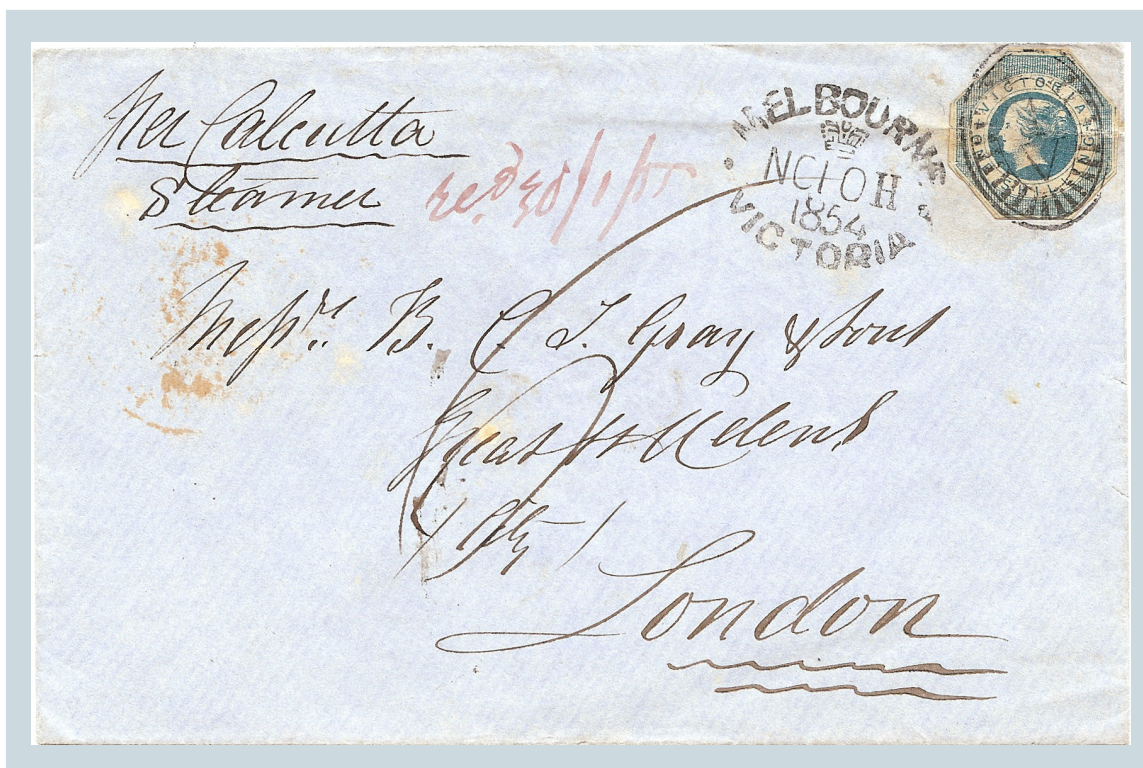 per Calcutta
Steamer
recd 30/1/55
MELBOURNE
NC10H
1854
VICTORIA
VICTORIA
ONE SHILLING
Messrs. B. C. T. Gray & Sons
Great St Helens
City
London